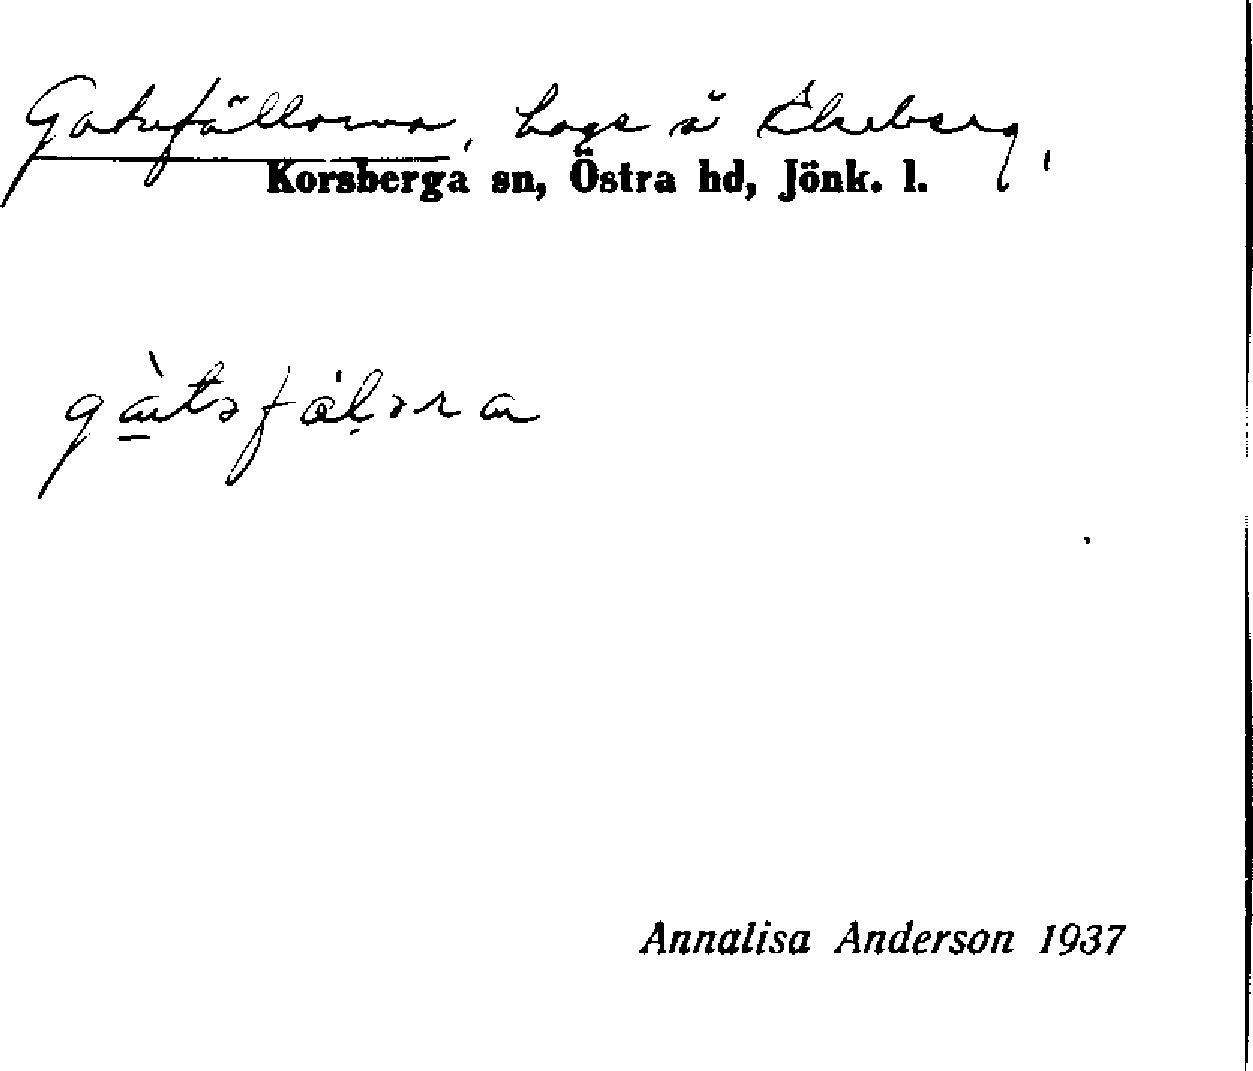 Gatufällorna, hage å Ekeberg,
Korsberga sn, Östra hd, Jönk. l.
Annalisa Anderson 1937